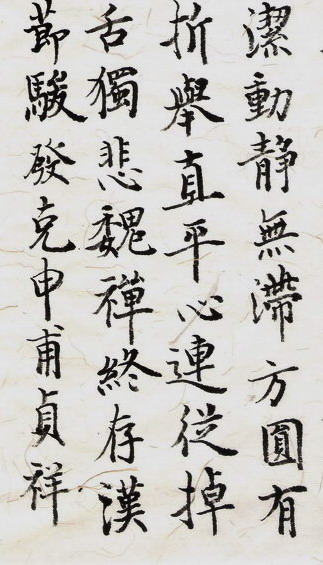 潔動靜無滯方圓有
折舉直平心連從掉
舌獨悲魏禪終存漢
節駿發克申甫貞祥